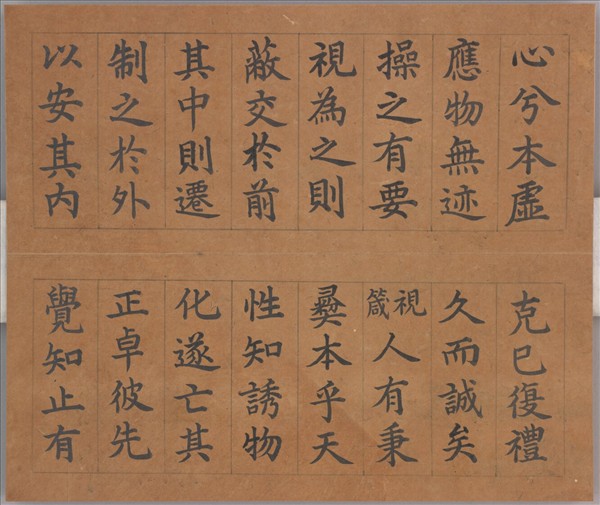 心兮本虛
應物無迹
操之有要
視為之則
蔽交於前
其中則遷
制之於外
以安其內
克己復禮
久而誠矣
視箴人有秉
彝本乎天
性知誘物
化遂亡其
正卓彼先
覺知止有